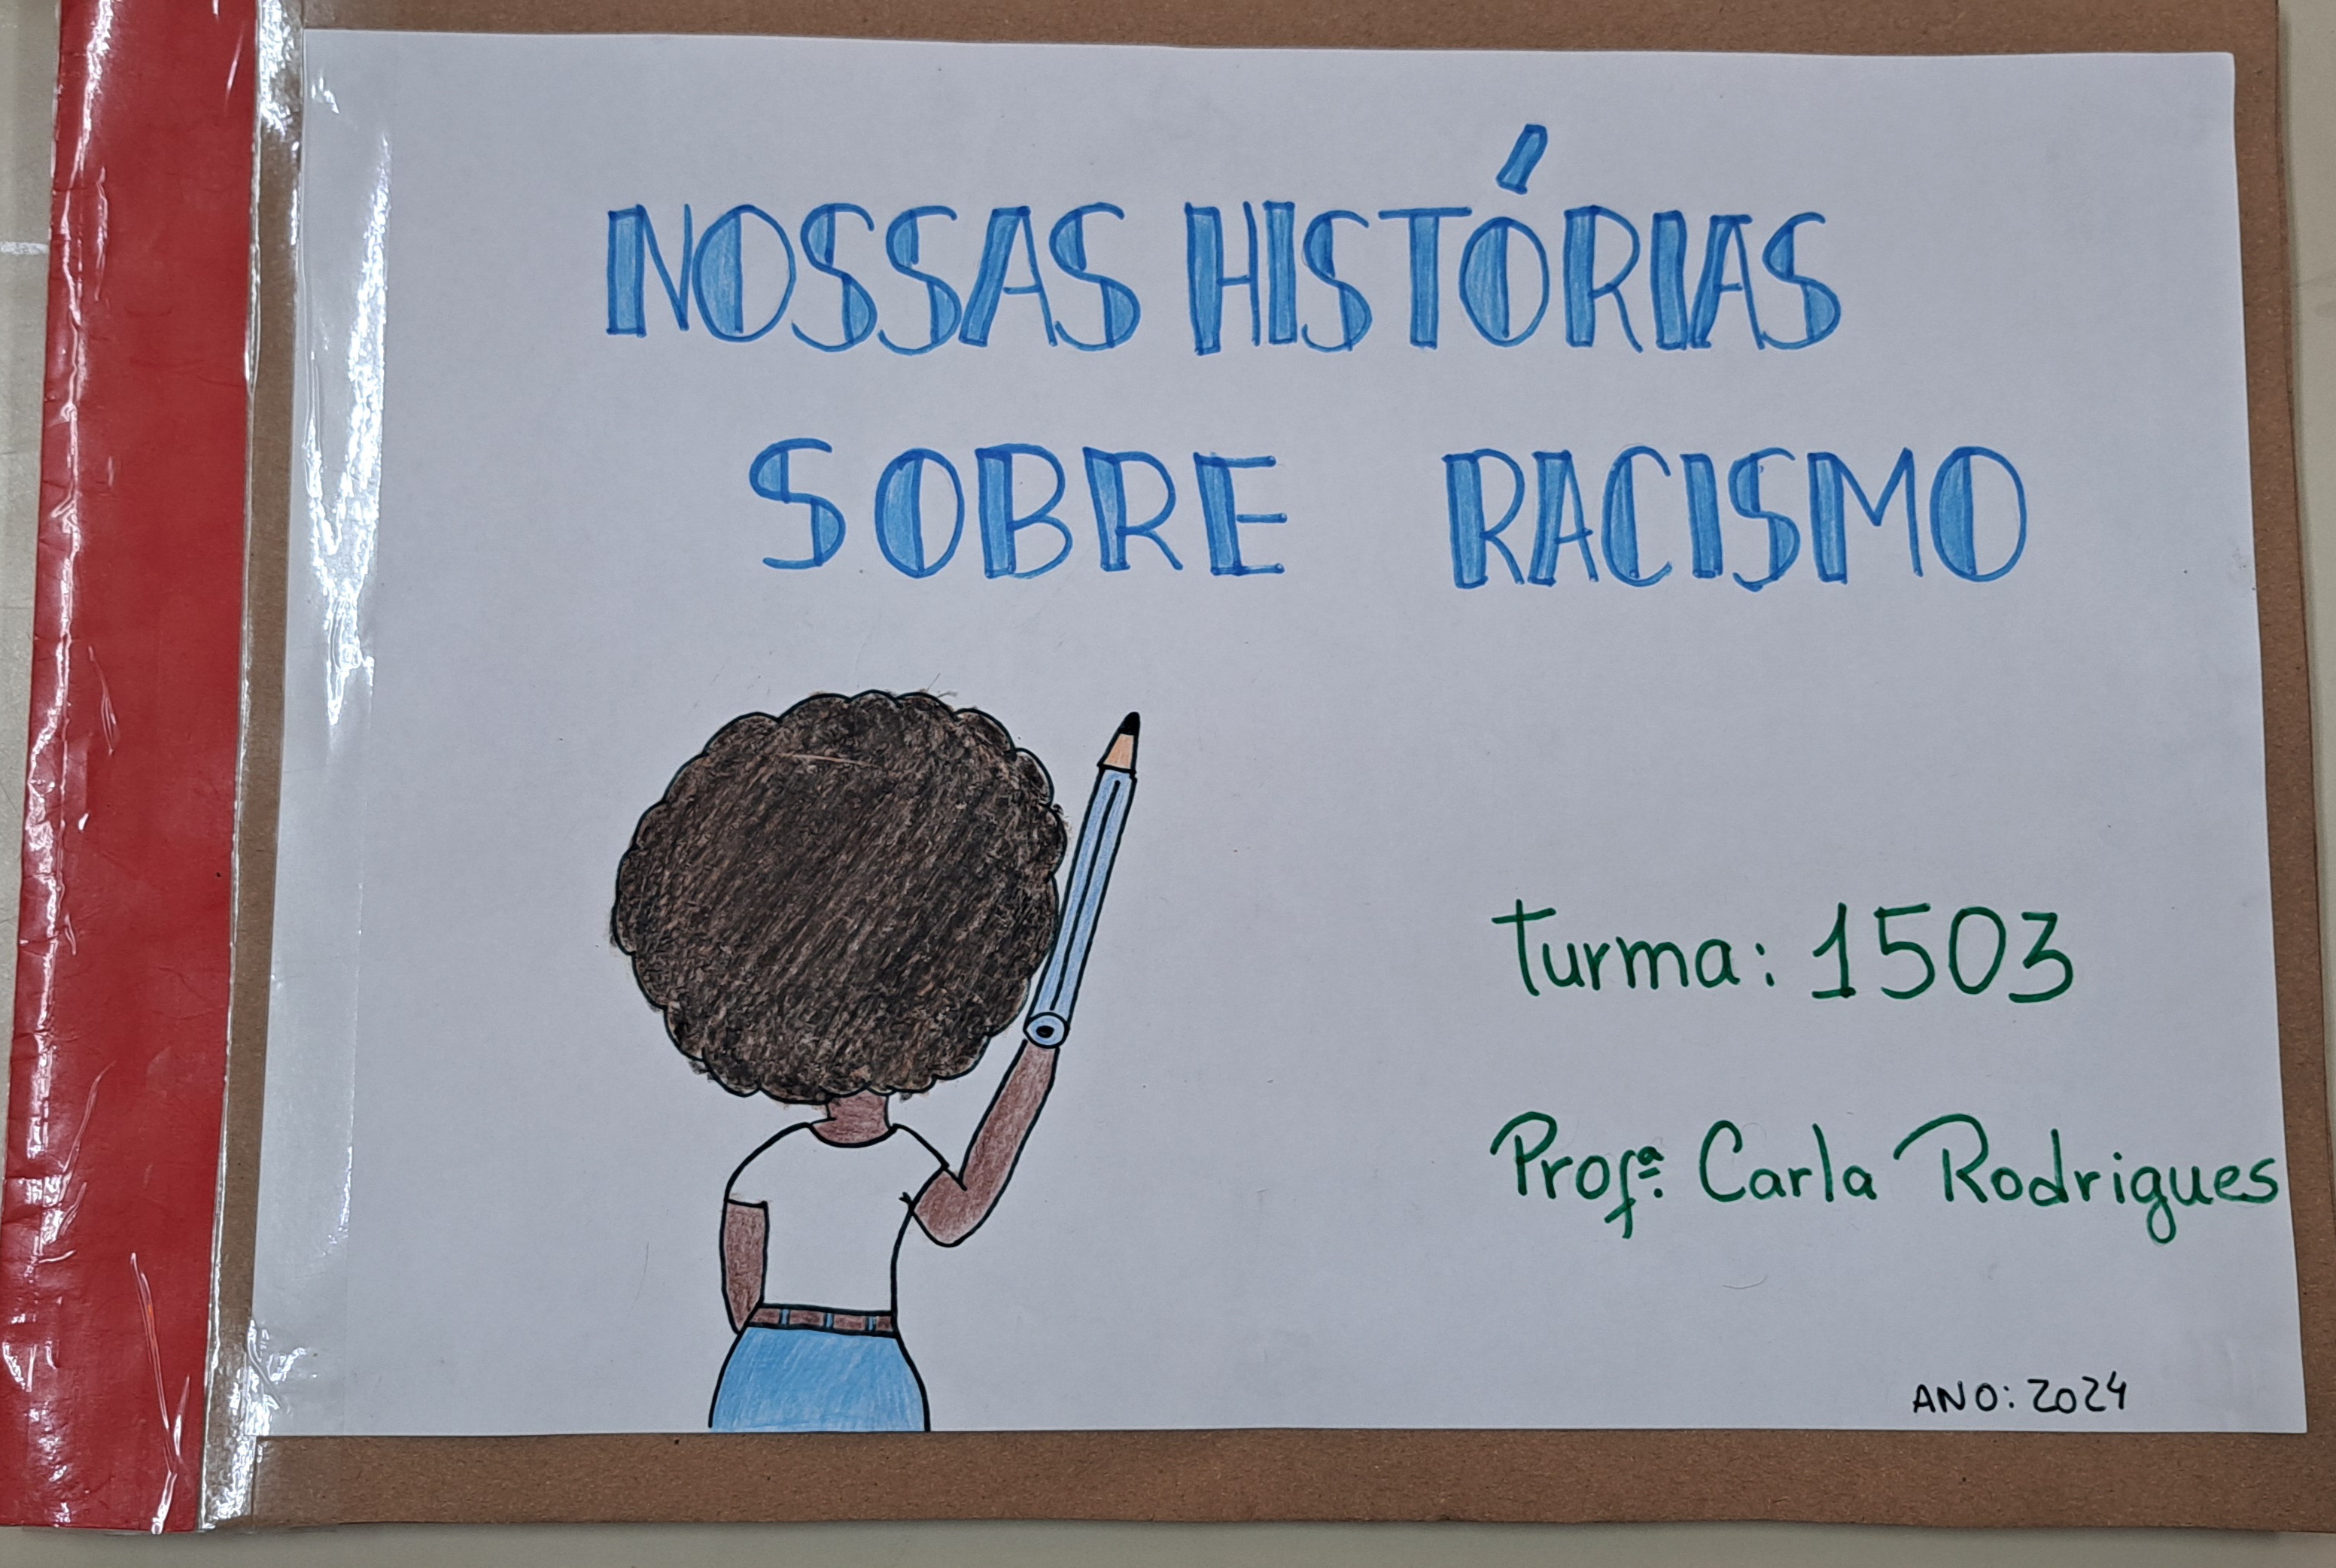 NOSSAS HISTÓRIAS
SOBRE RACISMO
Turma: 1503
Profª. Carla Rodrigues
ANO: 2024